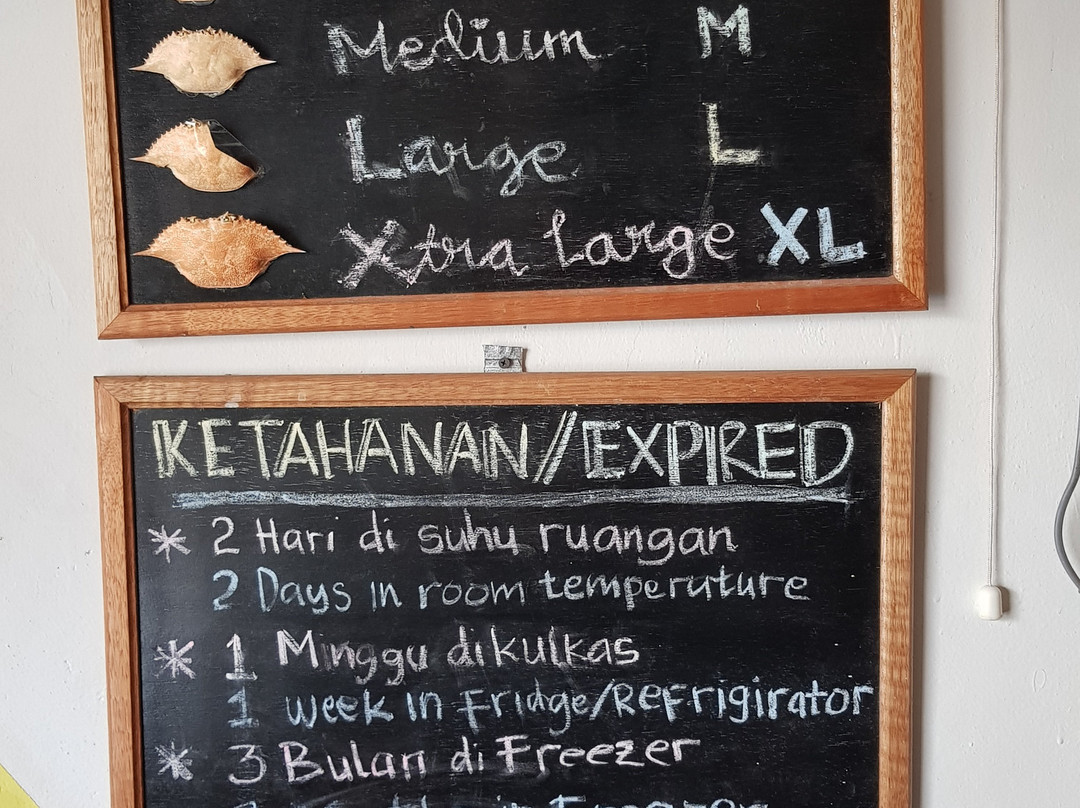 Medium M
Large L
Xtra large XL
KETAHANAN//EXPIRED
* 2 Hari di suhu ruangan
2 Days in room temperuture
* 1 Minggu dikulkas
1 week in Fridge/Refrigirator
* 3 Bulan di Freezer
in Freezer